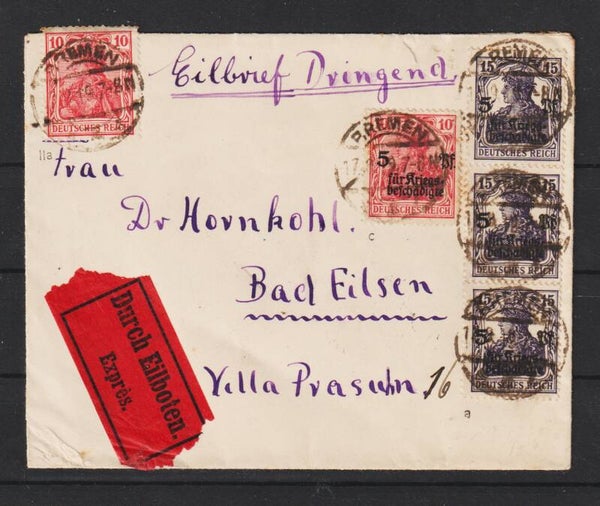 10 10
DEUTSCHES REICH
BREMEN
7-8N
IIa
Eilbrief Dringend
10
5 Pf
für Kriegs-
beschädigte
DEUTSCHES REICH
BREMEN
17. 7-8N
c
15 15
5 Pf
für Kriegs-
beschädigte
DEUTSCHES REICH
BREMEN
15 15
5 Pf
für Kriegs-
beschädigte
DEUTSCHES REICH
15 15
5 Pf
für Kriegs-
beschädigte
DEUTSCHES REICH
BREMEN
a
Frau
Dr Hornkohl.
Bad Eilsen
Villa Prasuhn 16
Durch Eilboten.
Exprès.